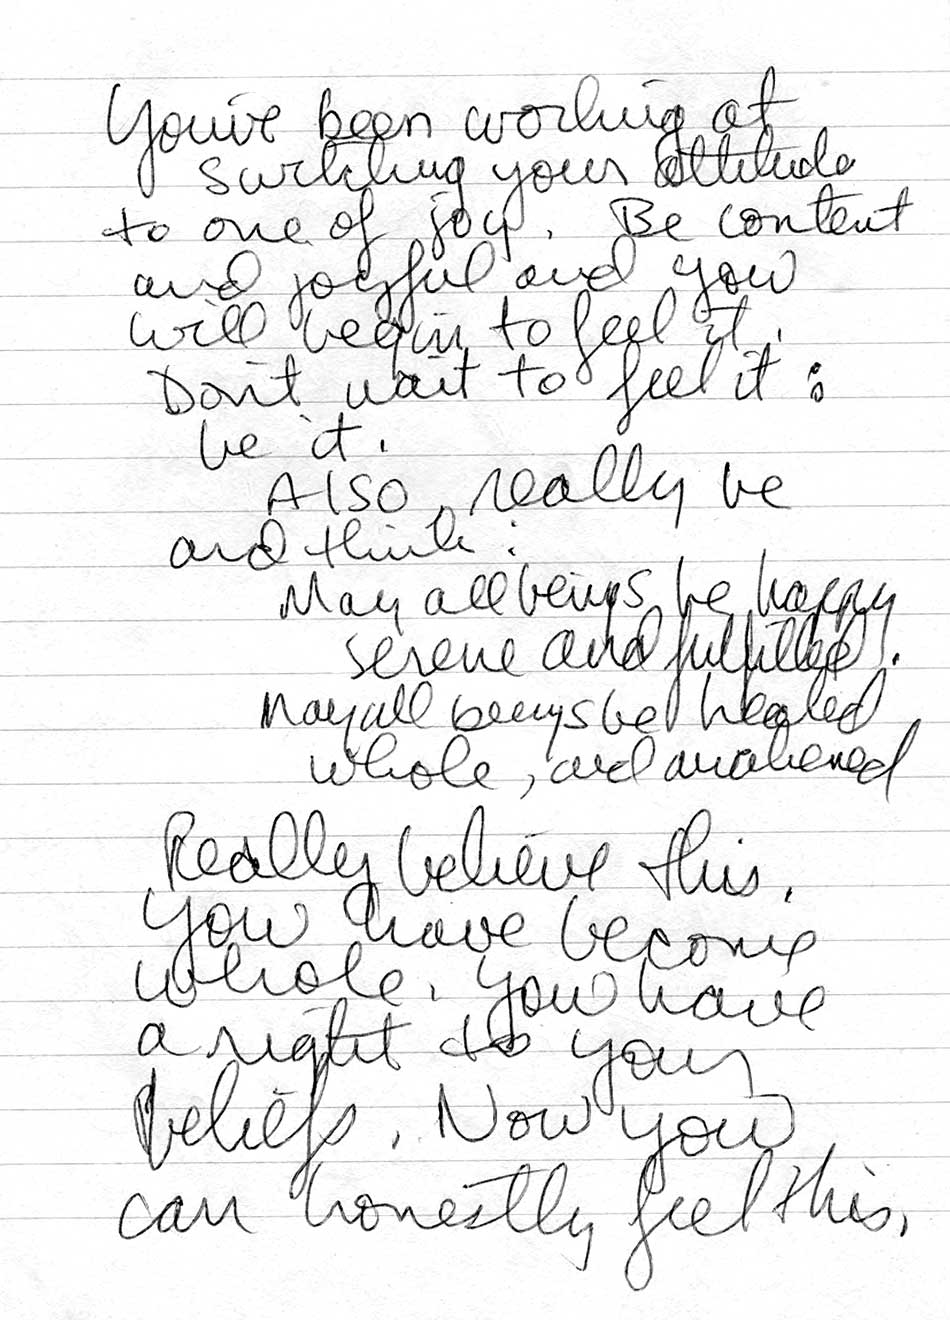 You've been working at
switching your attitude
to one of joy. Be content
and joyful and you
will begin to feel it.
Don't wait to feel it :
be it.
Also, really be
and think :
May all beings be happy
serene and fulfilled.
May all beings be healed
whole, and awakened
Really believe this.
You have become
whole. You have
a right to your
beliefs. Now you
can honestly feel this.